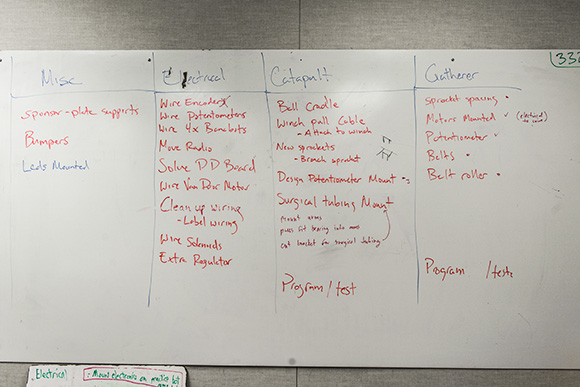 Misc
sponsor-plate supports
Bumpers
Leds Mounted
Electrical
Wire Encoders
Wire Potentometers
Wire 4x Banebots
Move Radio
Solve DD Board
Wire Van Door Motor
Clean up wiring
- Label wiring
Wire Solenoids
Extra Regulator
Catapult
Ball Cradle
Winch pull Cable
- Attach to winch
New sprockets
- Broach sprocket
Design Potentiometer Mount
Surgical tubing Mount
mount arms
press fit bearing into arms
cut bracket for surgical tubing
Program / test
Gatherer
Sprocket spacing
Motors Mounted ✓ (electrical to wire)
Potentiometer
Belts
Belt roller
Program / test
332
Electrical
: Mount electronics on